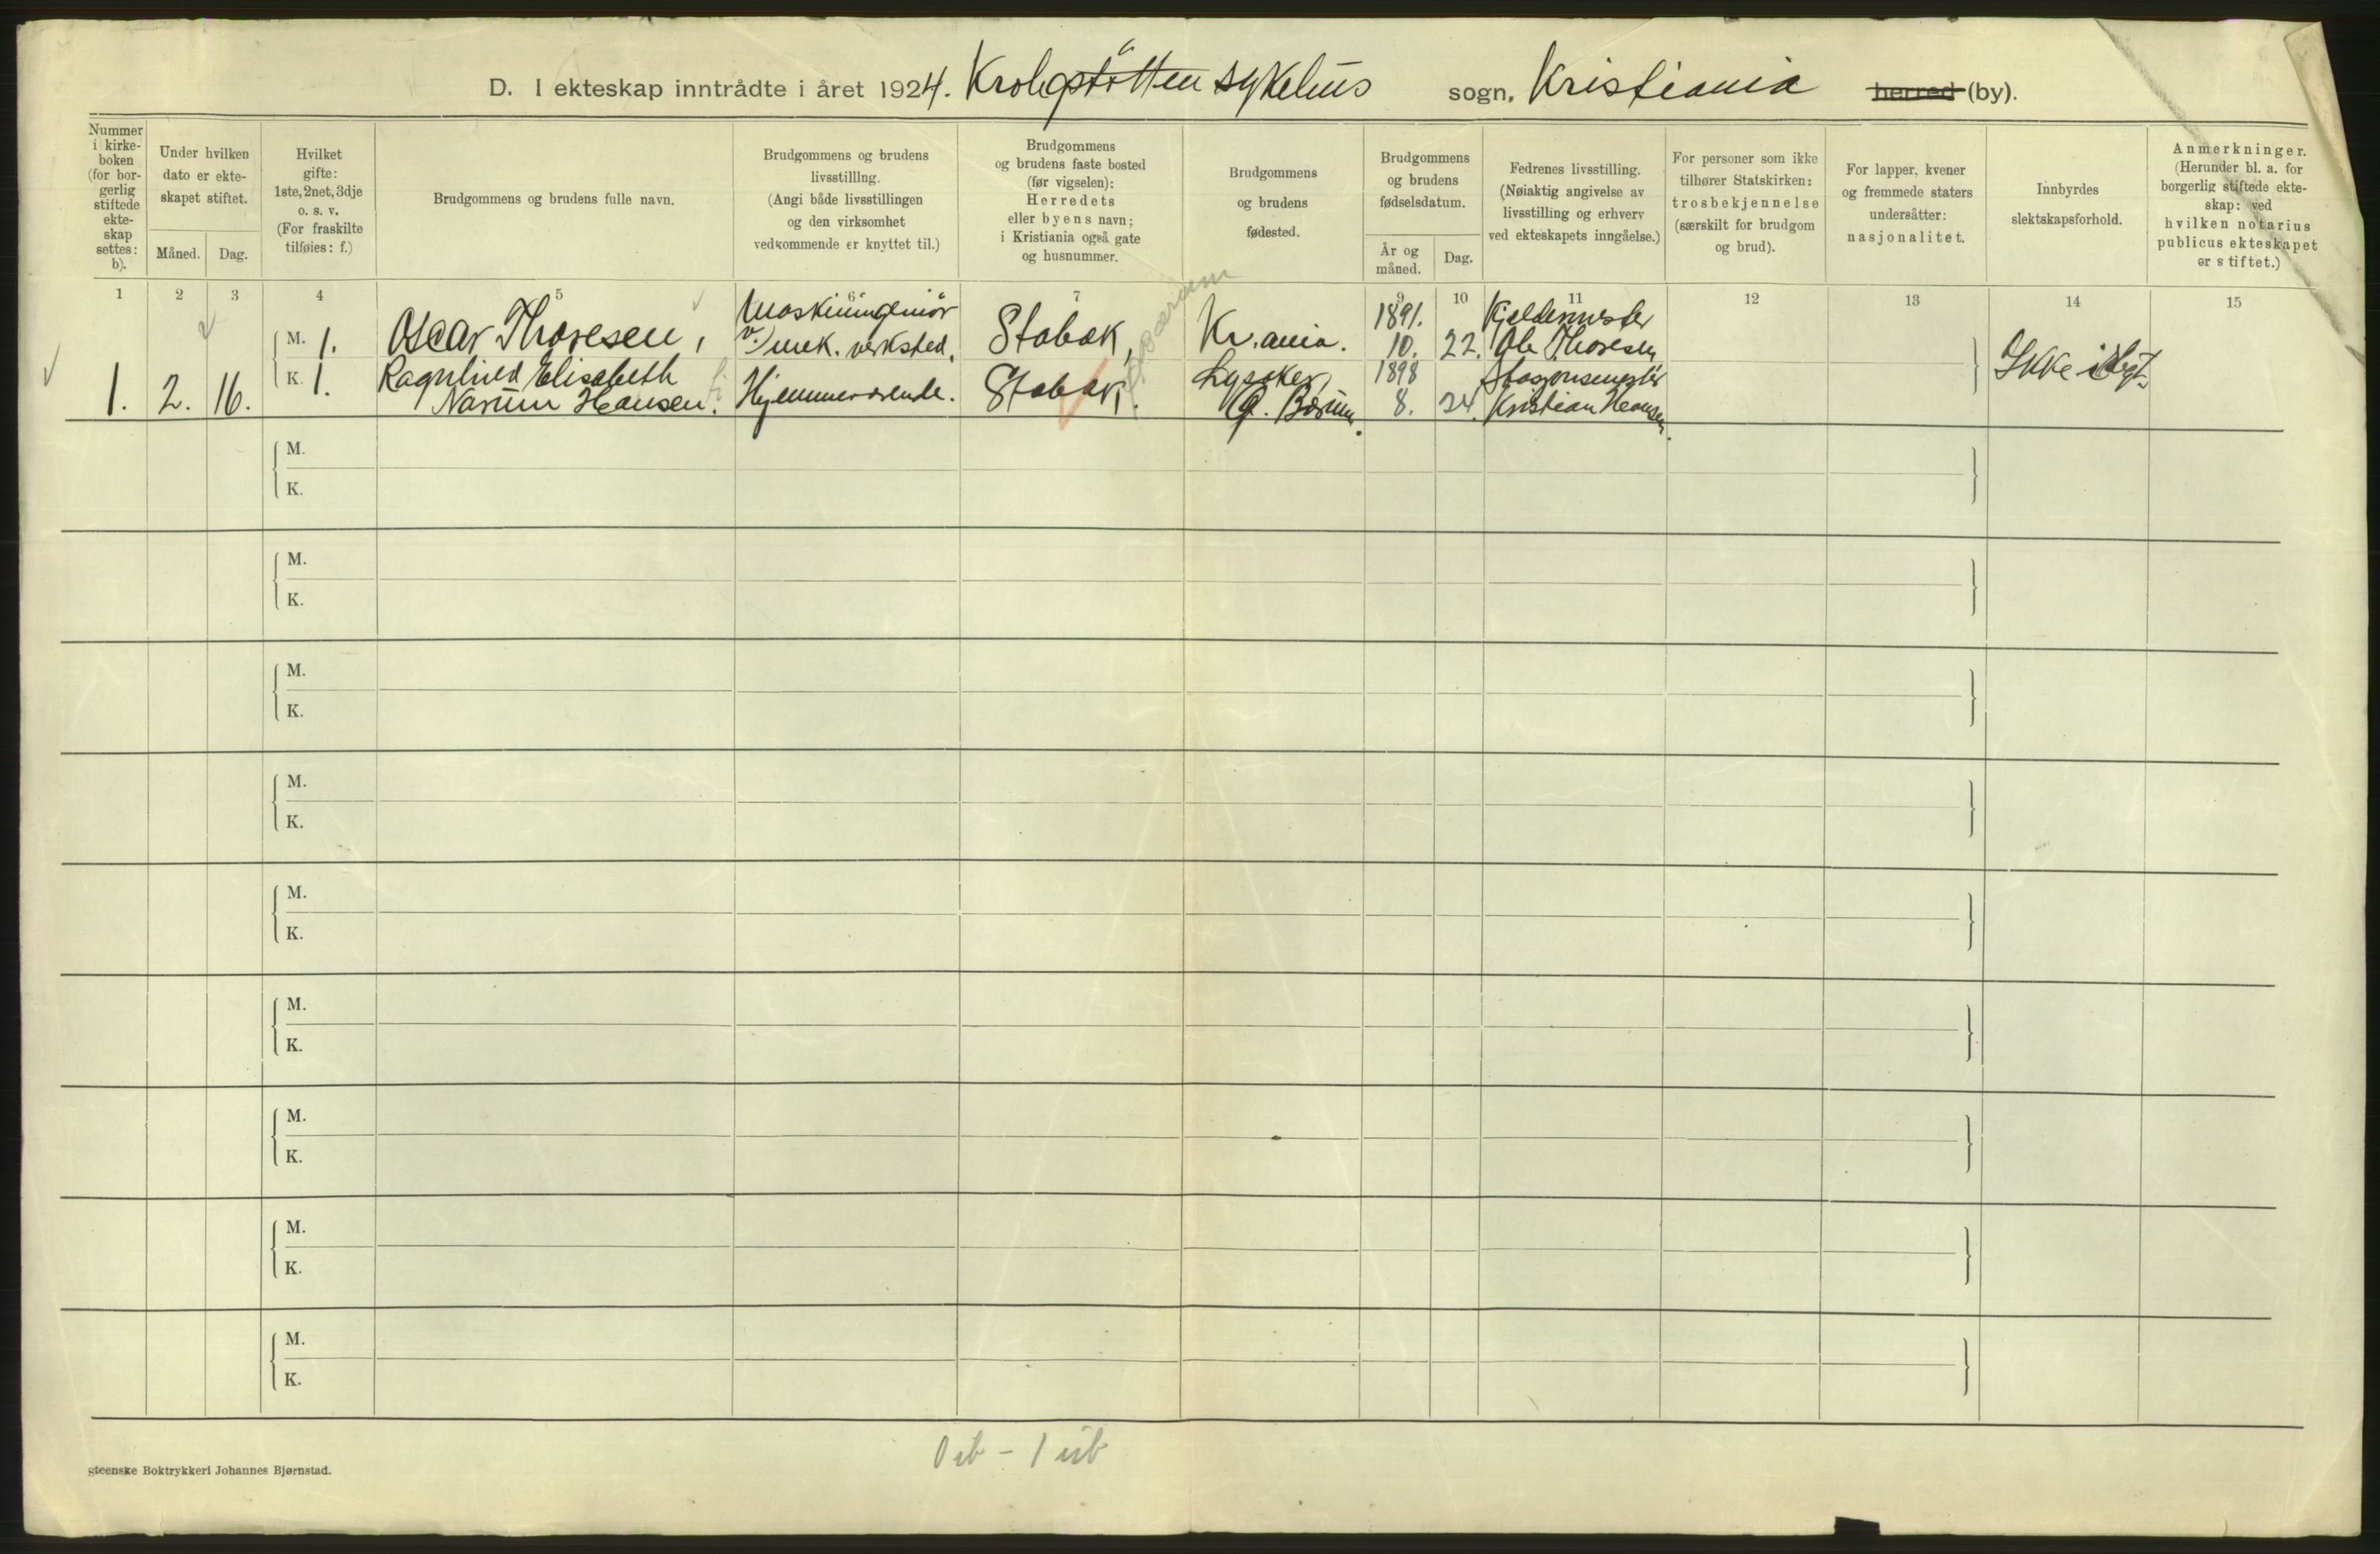 D. I ekteskap inntrådte i året 1924. Krohgstøtten sykehus sogn, Kristiania herred (by).
Nummer
i kirke-
boken
(for bor-
gerlig
stiftede
ekte-
skap
settes:
b).
Under hvilken
dato er ekte-
skapet stiftet.
Måned.
Dag.
Hvilket
gifte:
1ste, 2net, 3dje
o. s. v.
(For fraskilte
tilføies: f.)
Brudgommens og brudens fulle navn.
Brudgommens og brudens
livsstilling.
(Angi både livsstillingen
og den virksomhet
vedkommende er knyttet til.)
Brudgommens
og brudens faste bosted
(før vigselen):
Herredets
eller byens navn;
i Kristiania også gate
og husnummer.
Brudgommens
og brudens
fødested.
Brudgommens
og brudens
fødselsdatum.
År og
måned.
Dag.
Fedrenes livsstilling.
(Nøiaktig angivelse av
livsstilling og erhverv
ved ekteskapets inngåelse.)
For personer som ikke
tilhører Statskirken:
trosbekjennelse
(særskilt for brudgom
og brud).
For lapper, kvener
og fremmede staters
undersåtter:
nasjonalitet.
Innbyrdes
slektskapsforhold.
Anmerkninger.
(Herunder bl. a. for
borgerlig stiftede ekte-
skap: ved
hvilken notarius
publicus ekteskapet
er stiftet.)
1 2 3 4 5 6 7 9 10 11 12 13 14 15
1. 2. 16.
M. 1. Oscar Thoresen,
Maskiningeniør
v/ mek. verksted.
Stabæk,
Kr.ania.
1891.
10. 22.
Kjeldermester
Ole Thoresen
K. 1. Ragnhild Elisabeth
Narum Hansen.
Hjemmeværende.
Stabæk,
Bærum
Lysaker,
Ø. Bærum.
1898
8. 24.
Stasjonsmester
Kristian Hansen.
Ikke i slegt.
M.
K.
M.
K.
M.
K.
M.
K.
M.
K.
M.
K.
M.
K.
M.
K.
M.
K.
0 ib - 1 ub
steenske Boktrykkeri Johannes Bjørnstad.